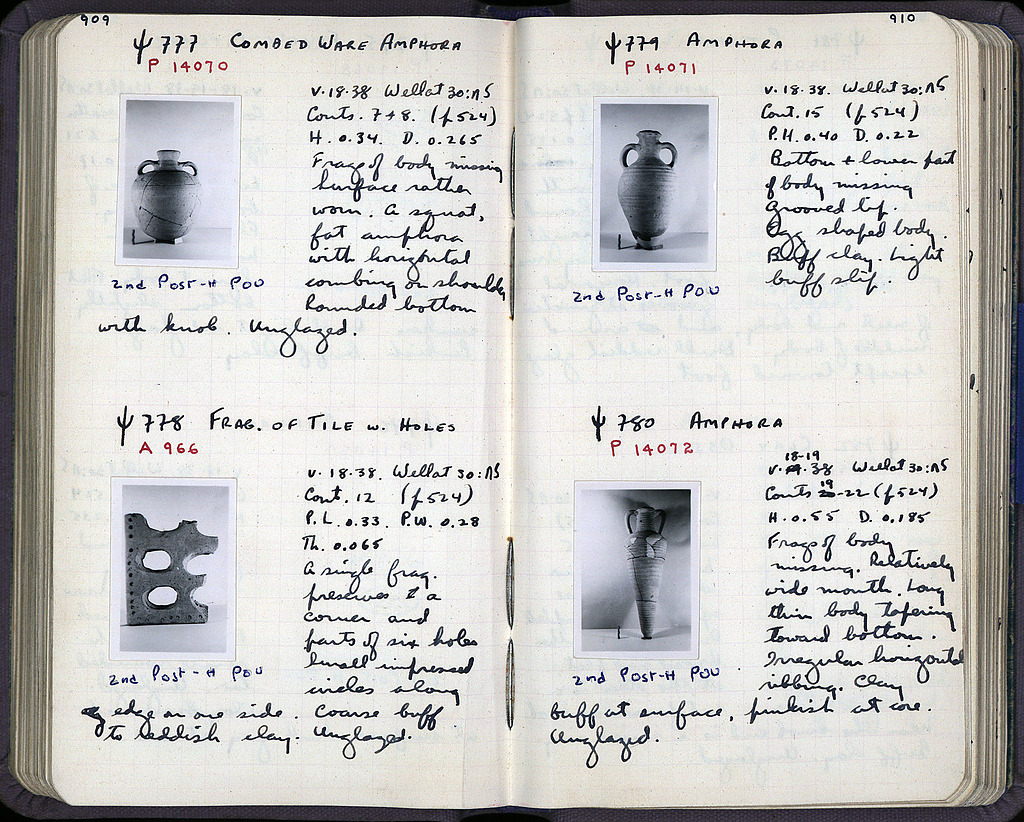 909
Ψ 777 COMBED WARE AMPHORA
P 14070
v.18.38 Well at 30:ΛΣ
Conts. 7+8. (p 524)
H. 0.34. D. 0.265
Frags of body missing
Surface rather
worn. A squat,
fat amphora
with horizontal
combing on shoulder
Rounded bottom
2nd POST-H POU
with knob. Unglazed.
Ψ 778 FRAG. OF TILE W. HOLES
A 966
v.18.38. Well at 30:ΛΣ
Cont. 12 (p 524)
P.L. 0.33. P.W. 0.28
Th. 0.065
A single frag.
preserves a
corner and
parts of six holes
Small impressed
circles along
2nd POST-H POU
edge on one side. Coarse buff
to reddish clay. Unglazed.
910
Ψ 779 AMPHORA
P 14071
v.18.38. Well at 30:ΛΣ
Cont. 15 (p 524)
P.H. 0.40 D. 0.22
Bottom + lower part
of body missing
Grooved lip.
Egg shaped body.
Buff clay. Light
buff slip.
2nd POST-H POU
Ψ 780 AMPHORA
P 14072
18-19
v. 38 Well at 30:ΛΣ
Conts 19-22 (p 524)
H. 0.55 D. 0.185
Frags of body
missing. Relatively
wide mouth. Long
thin body tapering
toward bottom.
Irregular horizontal
ribbing. Clay
2nd POST-H POU
buff at surface, pinkish at core.
Unglazed.